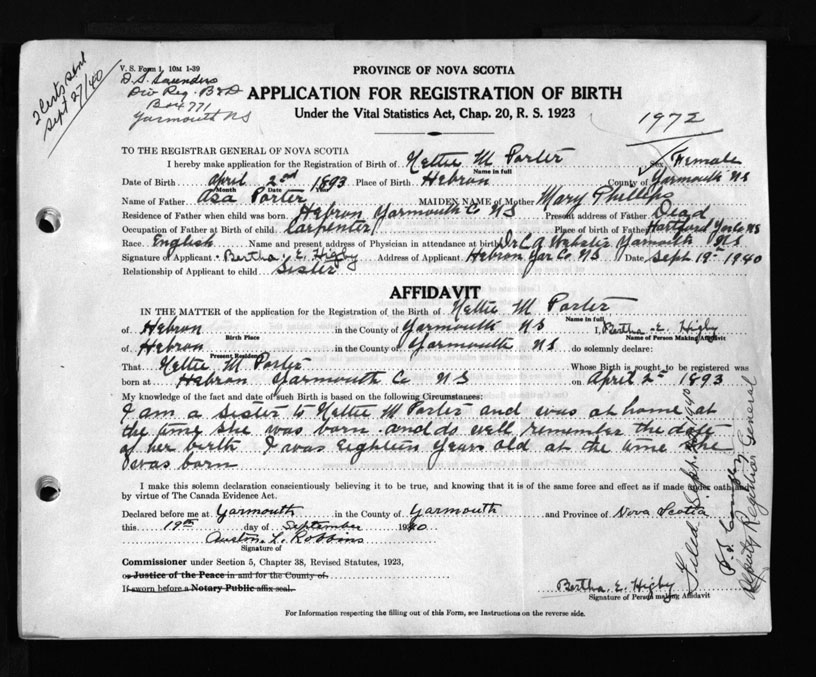 2 Certs sent
Sept 27/40
V. S. Form 1, 10M 1-39
D. S. Saunders
Div Reg. B & D
Box 771
Yarmouth NS
PROVINCE OF NOVA SCOTIA
APPLICATION FOR REGISTRATION OF BIRTH
Under the Vital Statistics Act, Chap. 20, R. S. 1923
1972
TO THE REGISTRAR GENERAL OF NOVA SCOTIA
I hereby make application for the Registration of Birth of Nettie M Porter Sex Female
Name in full
Date of Birth April 2nd 1893 Place of Birth Hebron County of Yarmouth NS
Month Date
Name of Father Asa Porter MAIDEN NAME of Mother Mary Phillips
Residence of Father when child was born Hebron Yarmouth Co NS Present address of Father Dead
Occupation of Father at Birth of child Carpenter Place of birth of Father Hartford Yar Co NS
Race English Name and present address of Physician in attendance at birth Dr C A Webster Yarmouth NS
Signature of Applicant Bertha E. Higby Address of Applicant Hebron Yar Co NS Date Sept 19th 1940
Relationship of Applicant to child Sister
AFFIDAVIT
IN THE MATTER of the application for the Registration of the Birth of Nettie M Porter
Name in full
of Hebron in the County of Yarmouth NS I, Bertha E. Higby
Birth Place Name of Person Making Affidavit
of Hebron in the County of Yarmouth NS do solemnly declare:
Present Residence
That Nettie M Porter Whose Birth is sought to be registered was
born at Hebron Yarmouth Co NS on April 2nd 1893
My knowledge of the fact and date of such Birth is based on the following Circumstances:
I am a sister to Nettie M Porter and was at home at
the time she was born and do well remember the date
of her birth I was Eighteen years old at the time she
was born
I make this solemn declaration conscientiously believing it to be true, and knowing that it is of the same force and effect as if made under oath and
by virtue of The Canada Evidence Act.
Declared before me at Yarmouth in the County of Yarmouth and Province of Nova Scotia
this 19th day of September 1940
Austin L. Robbins
Signature of
Commissioner under Section 5, Chapter 38, Revised Statutes, 1923,
or Justice of the Peace in and for the County of
If sworn before a Notary Public affix seal.
Bertha E. Higby
Signature of Person making Affidavit
For Information respecting the filling out of this Form, see Instructions on the reverse side.
Filed Sept 1940
Deputy Registrar General